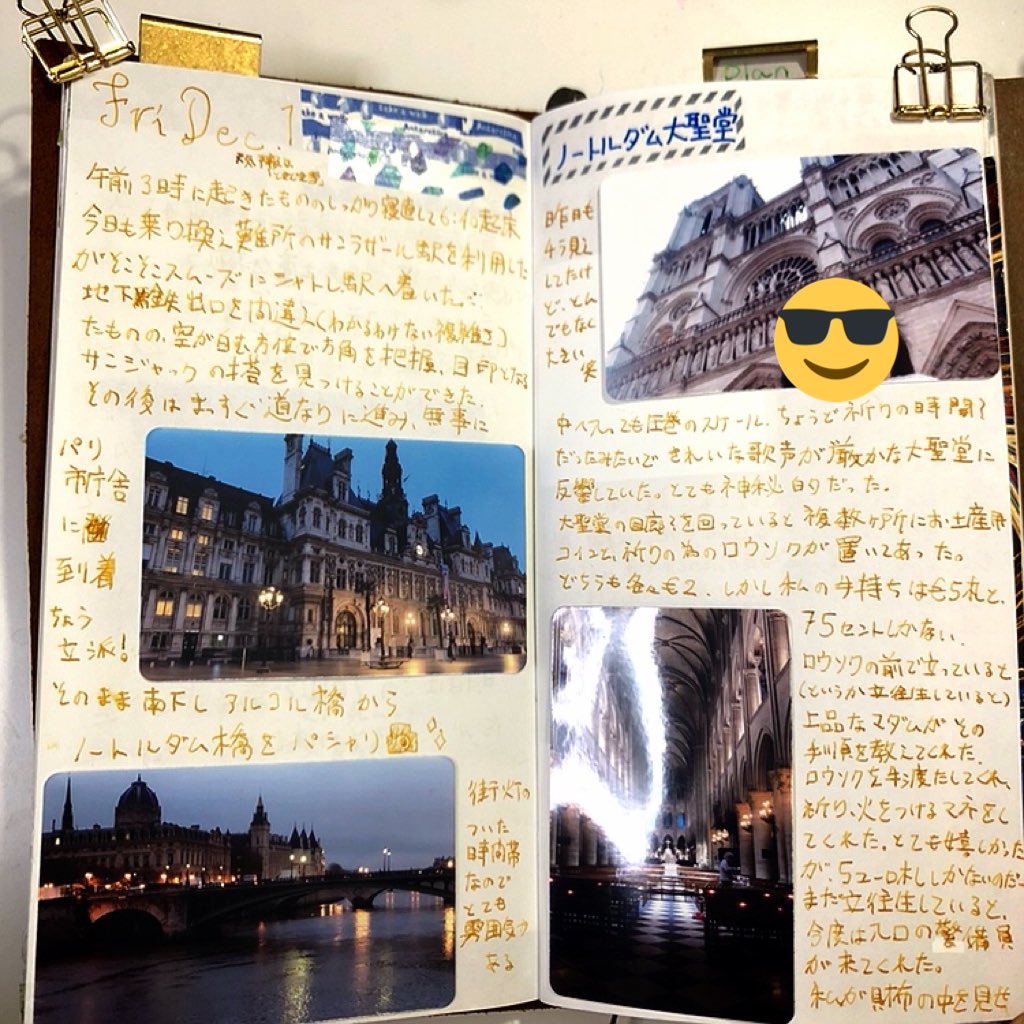 Fri Dec. 1
take a walk
Antarctica
午前3時に起きたもののしっかり寝直して6:40起床
今日も乗り換え難所のサンラザール駅を利用した
がそこそこスムーズにシャトレ駅へ着いた。
地下鉄出口を間違え(わかるわけない複雑さ)
たものの、空が白む方位で方角を把握、目印となる
サンジャックの塔を見つけることができた。
その後はまっすぐ道なりに進み、無事に
パリ
市庁舎
に
到着
ちょう
立派!
そのまま南下しアルコル橋から
ノートルダム橋をパシャリ
街灯の
ついた
時間帯
なので
とても
雰囲気が
ある
plan
ノートルダム大聖堂
昨日も
チラ見え
してたけ
ど、とん
でもなく
大きい
中へ入っても圧巻のスケール、ちょうど祈りの時間?
だったみたいできれいな歌声が厳かな大聖堂に
反響していた。とても神秘的だった。
大聖堂の回廊?を回っていると複数ヶ所にお土産用
コインと、祈りの為のロウソクが置いてあった。
どちらも各々€2、しかし私の手持ちは€5札と、
75セントしかない、
ロウソクの前で立っていると
(というか立往生していると)
上品なマダムがその
手順を教えてくれた
ロウソクを手渡たしてくれ、
祈り、火をつけるマネをし
てくれた。とても嬉しかった
が、5ユーロ札しかないのだ…
まだ立往生していると、
今度は入口の警備員
が来てくれた。
私が財布の中を見せ